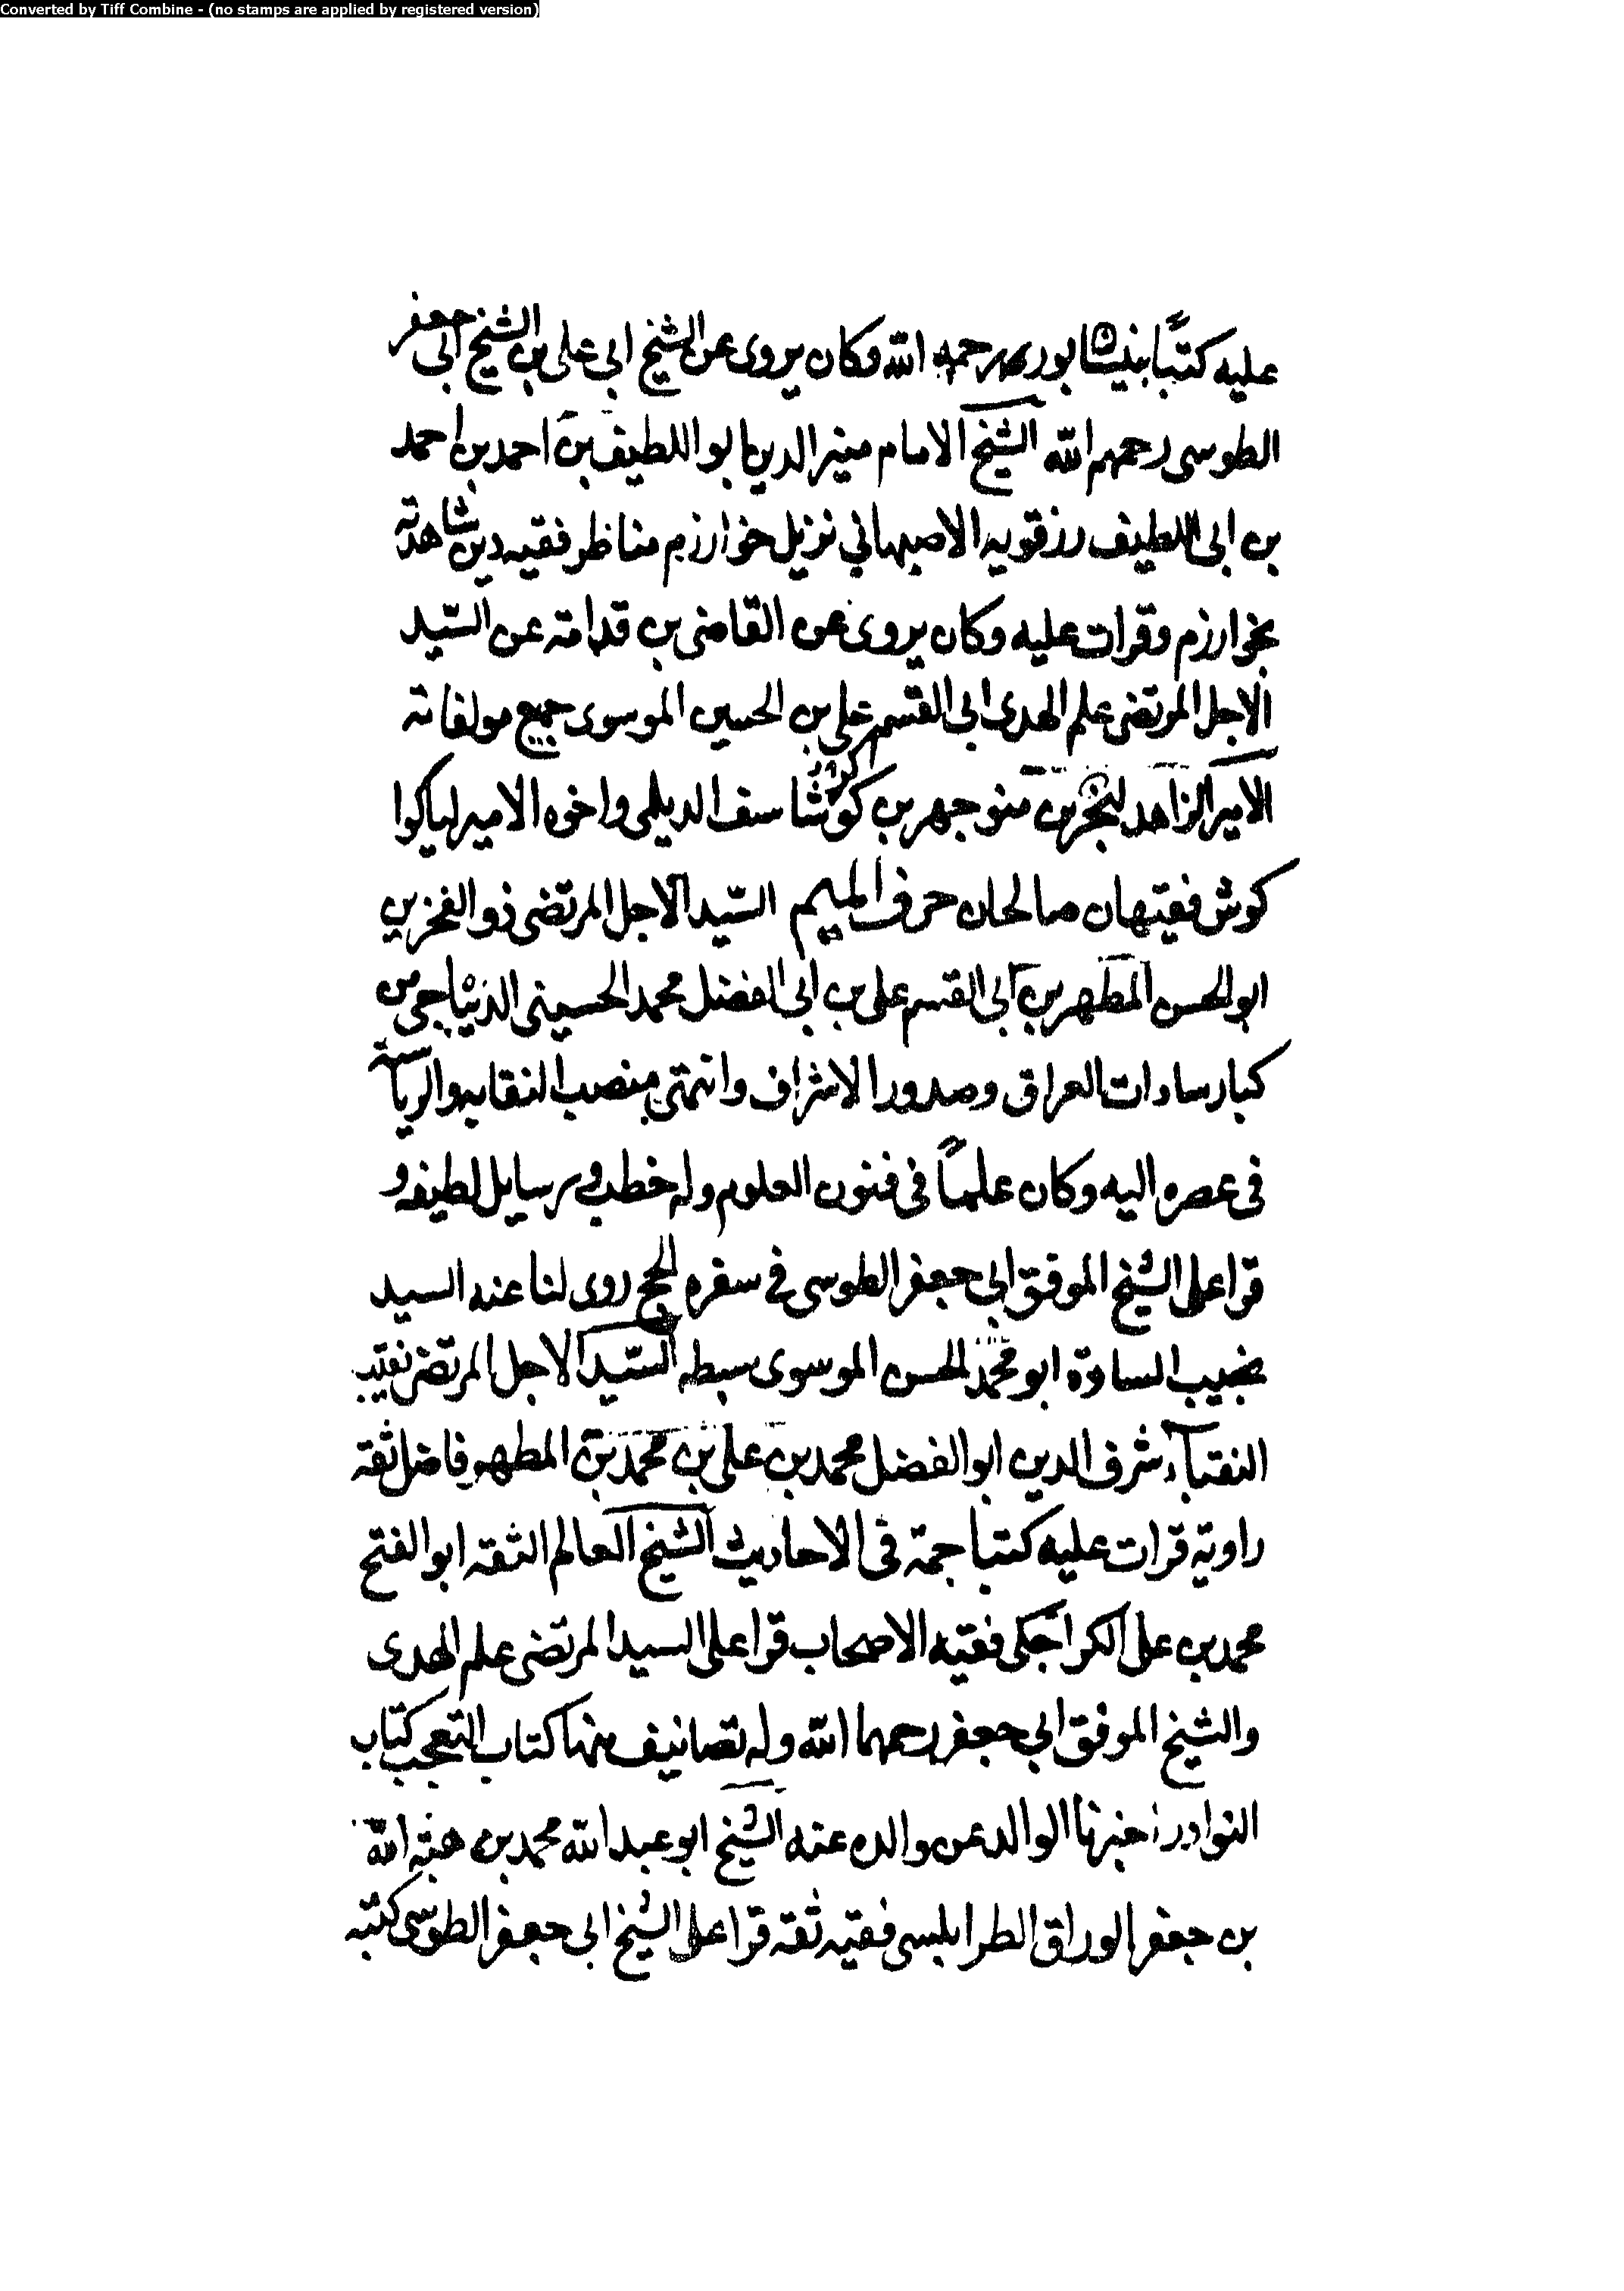 Converted by Tiff Combine - (no stamps are applied by registered version)
عليه كتبًا بنيشابور رحمه الله وكان يروى عن الشيخ ابى على بن الشيخ ابى جعفر
الطوسى رحمهم الله الشيخ الامام منير الدين ابو اللطيف بن احمد بن احمد
بن ابى اللطيف رزقويه الاصبهاني نزيل خوارزم مناظر فقيه دين شاهدته
بخوارزم وقرات عليه وكان يروى عن القاضى بن قدامته عن السّيد
الاجل المرتضى علم الهدى ابى القسم على بن الحسين الموسوى جميع مولفاته
الامير الزاهد بن منوجهر بن كرشاسف الديلمى واخوه الامير لياكوا
كوش فقيهان صالحان حرف الميم السّيد الاجل المرتضى ذو الفخرين
ابو الحسن المطهر بن ابى القسم على بن ابى الفضل محمد الحسينى الديباجى من
كبار سادات العراق وصدور الاشراف وانتهى منصب النقابه والرياسة
فى عصره اليه وكان علمًا فى فنون العلوم وله خطب ورسايل لطيفه و
قرا على الشيخ الموفق ابي جعفر الطوسى في سفره الحج روى لنا عنه السيد
نجيب السادة ابو محمد الحسن الموسوى سبطه السّيد الاجل المرتضى نقيب
النقباء شرف الدين ابو الفضل محمد بن على بن محمد بن المطهر فاضل ثقه
راوية قرات عليه كتبا جمة فى الاحاديث الشيخ العالم الثقه ابو الفتح
محمد بن على الكراجكى فقيه الاصحاب قرا على السيد المرتضى علم الهدى
والشيخ الموفق ابي جعفر رحمهما الله وله تصانيف منها كتاب التعجب كتاب
النوادر اخبرنا الوالد عن والده عنه الشيخ ابو عبد الله محمد بن هبة الله
بن جعفر الوراق الطرابلسى فقيه ثقه قرا على الشيخ ابى جعفر الطوسى كتبه